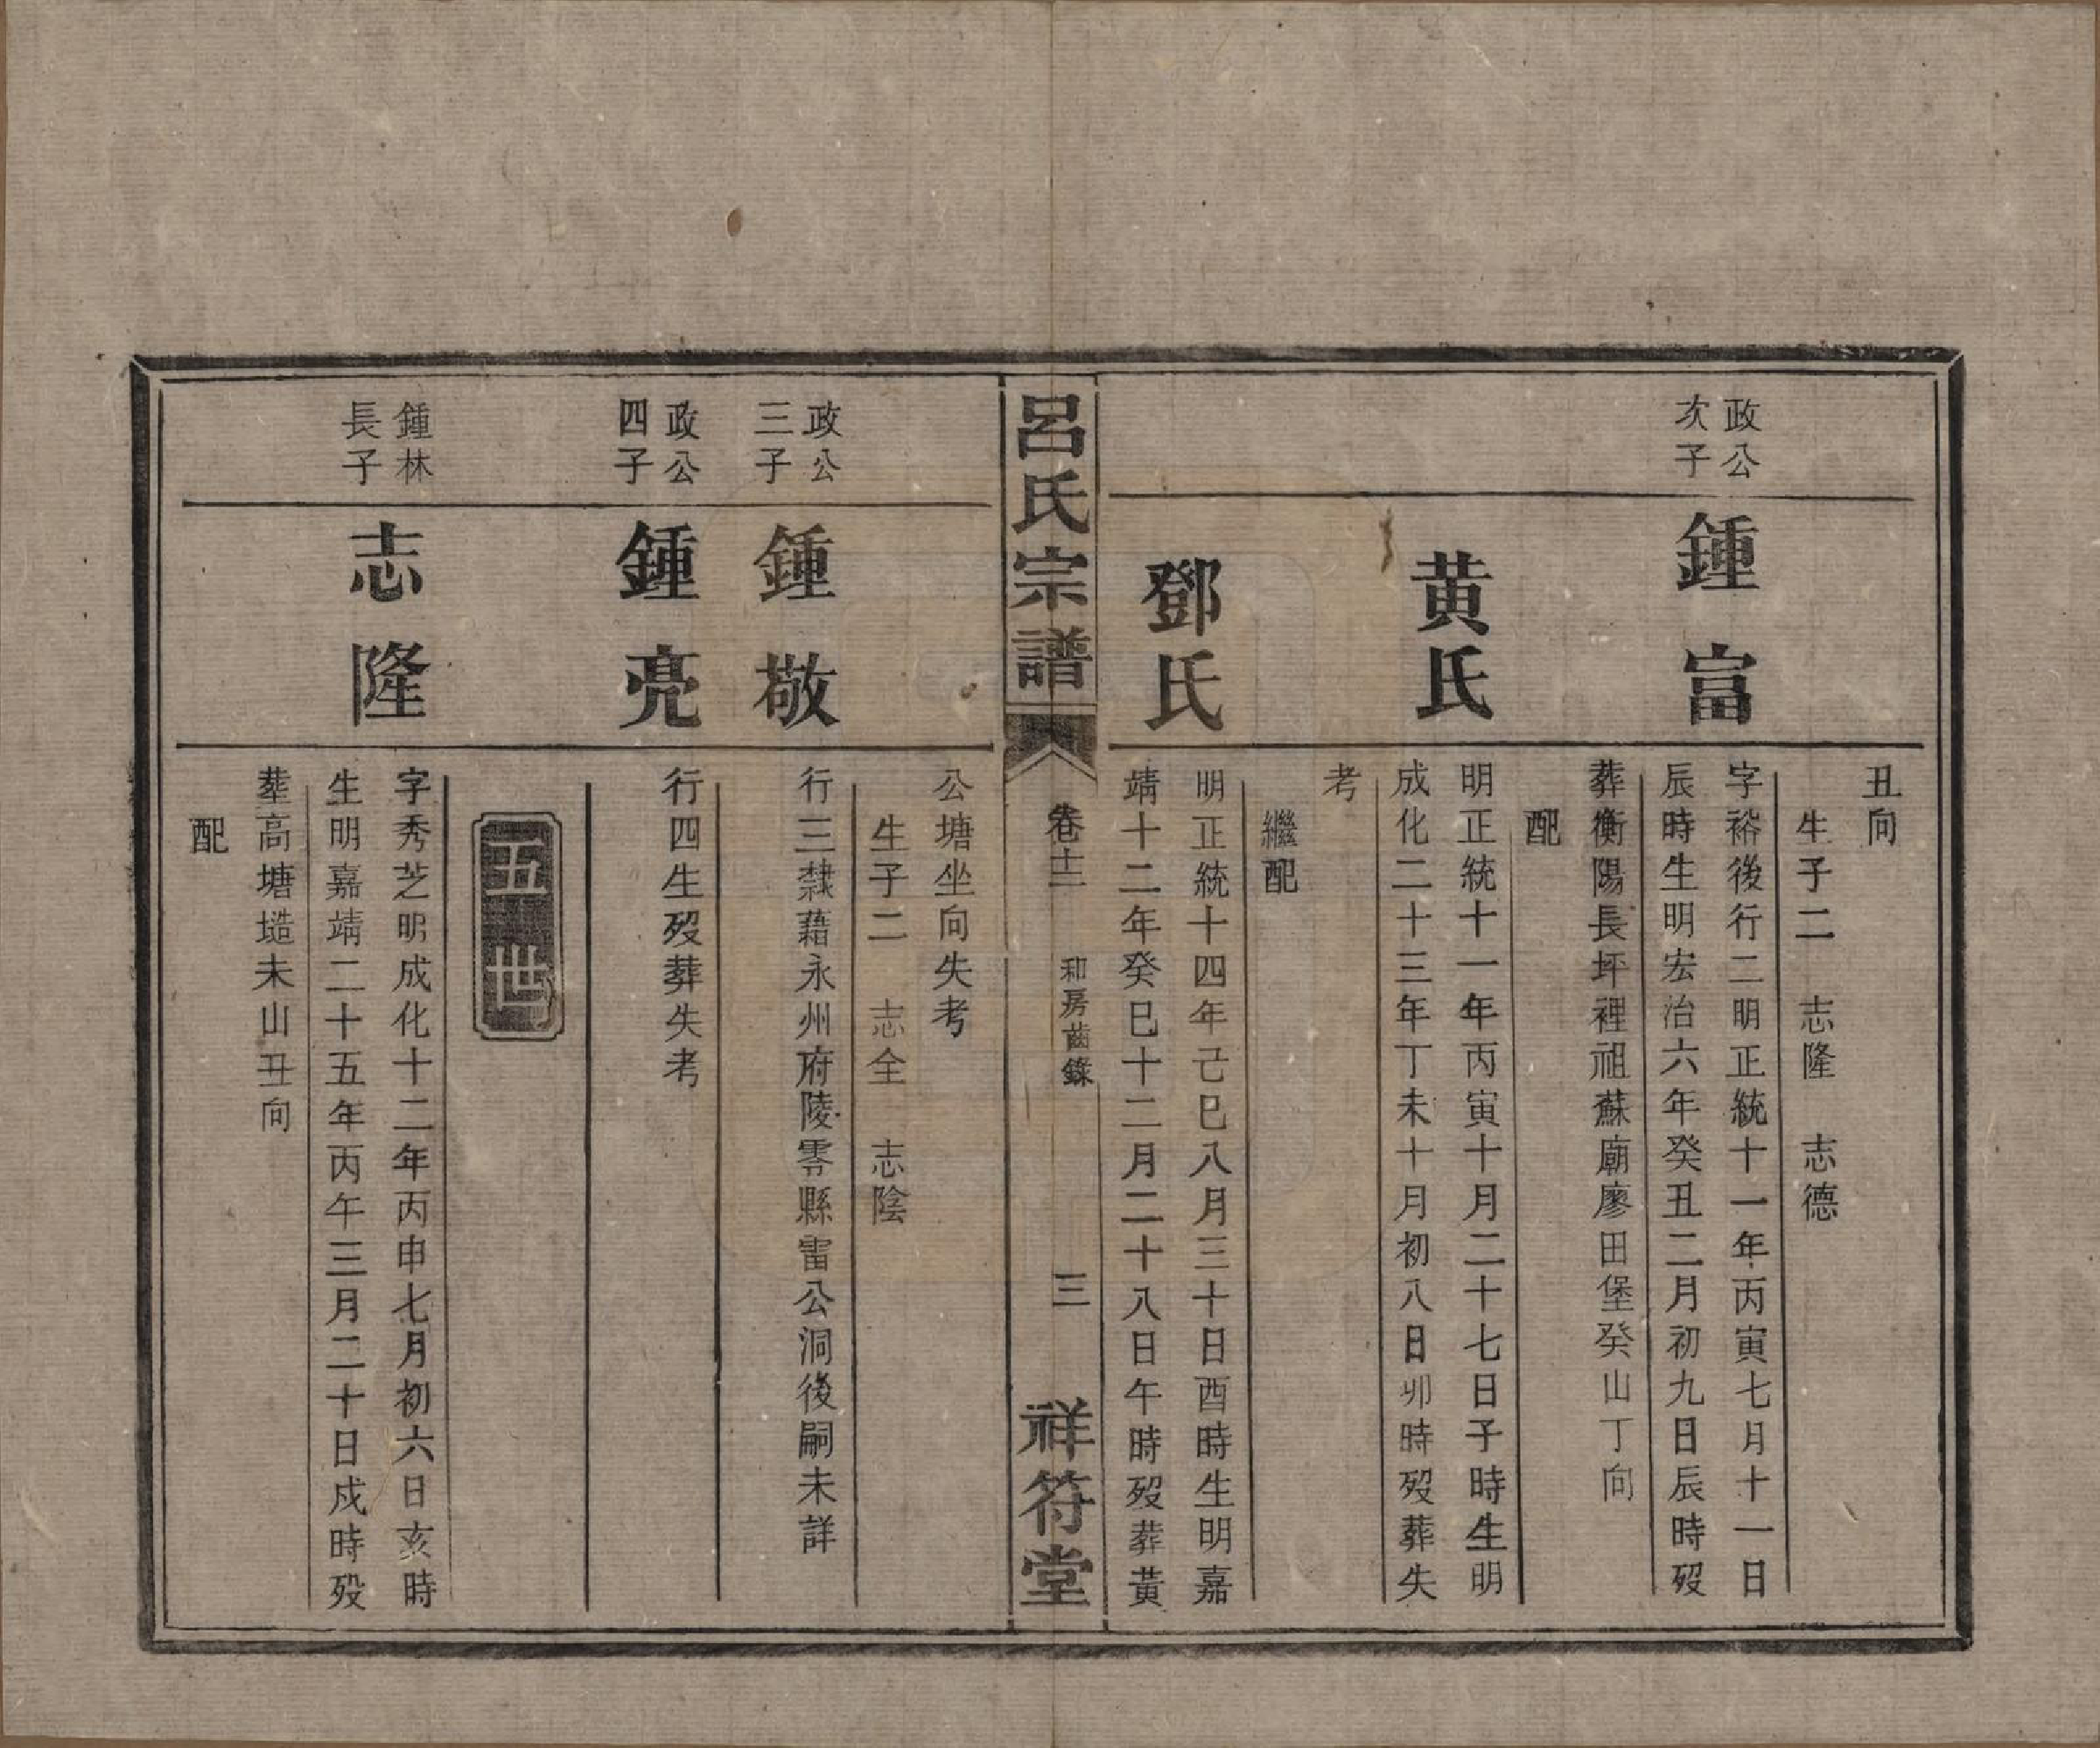 丑向
生子二　志隆　志德
政公
次子
鍾富
字裕後行二明正統十一年丙寅七月十一日
辰時生明宏治六年癸丑二月初九日辰時歿
葬衡陽長坪裡祖蘇廟廖田堡癸山丁向
配
黃氏
明正統十一年丙寅十月二十七日子時生明
成化二十三年丁未十月初八日卯時歿葬失
考
繼配
鄧氏
明正統十四年己巳八月三十日酉時生明嘉
靖十二年癸巳十二月二十八日午時歿葬黃
呂氏宗譜
卷十二
和房齒錄
三
祥符堂
公塘坐向失考
生子二　志全　志陰
政公
三子
鍾敬
行三隸藉永州府陵零縣雷公洞後嗣未詳
政公
四子
鍾亮
行四生歿葬失考
五世
鍾林
長子
志隆
字秀芝明成化十二年丙申七月初六日亥時
生明嘉靖二十五年丙午三月二十日戌時歿
塟高塘塏未山丑向
配